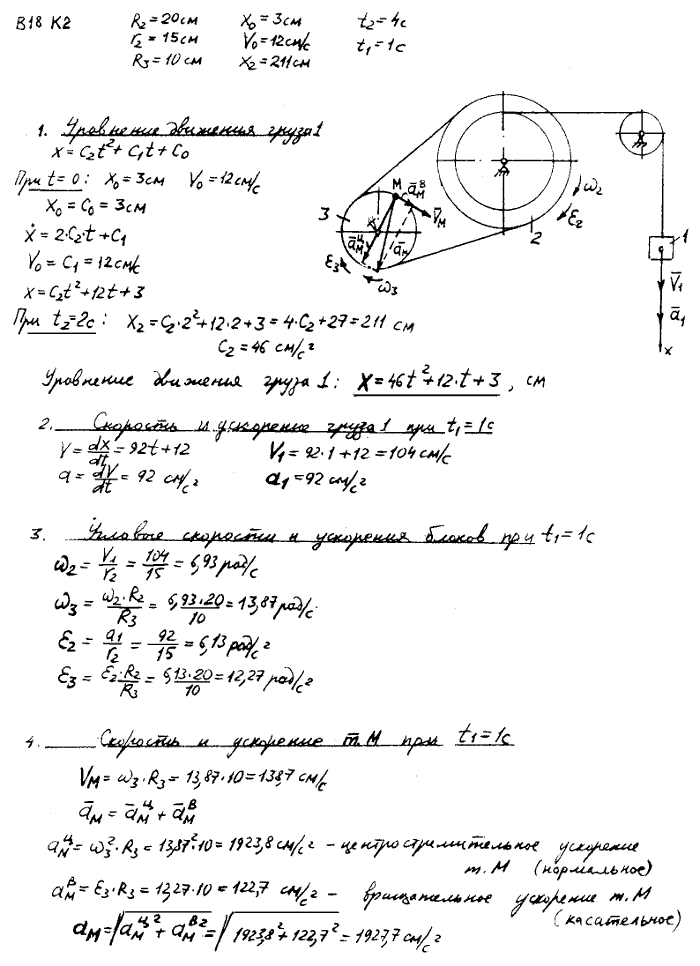 В18 К2 R₂=20см X₀=3см t₂=4с
r₂=15см V₀=12см/с t₁=1с
R₃=10см X₂=211см
1. Уравнение движения груза 1
x=C₂t²+C₁t+C₀
При t=0: X₀=3см V₀=12см/с
X₀=C₀=3см
ẋ=2·C₂·t+C₁
V₀=C₁=12см/с
x=C₂t²+12t+3
При t₂=2с: X₂=C₂·2²+12·2+3=4·C₂+27=211 см
C₂=46 см/с²
Уравнение движения груза 1: X=46t²+12·t+3, см
3
M
a̅ᴍᴮ
V̅ᴍ
a̅ᴍᶣ
a̅ᴍ
ε₃
ω₃
ω₂
ε₂
2
1
V̅₁
a̅₁
x
2. Скорость и ускорение груза 1 при t₁=1с
V=dx/dt=92t+12 V₁=92·1+12=104см/с
a=dV/dt=92 см/с² a₁=92см/с²
3. Угловые скорости и ускорения блоков при t₁=1с
ω₂=V₁/r₂=104/15=6,93рад/с
ω₃=ω₂·R₂/R₃=6,93·20/10=13,87рад/с
ε₂=a₁/r₂=92/15=6,13рад/с²
ε₃=ε₂·R₂/R₃=6,13·20/10=12,27рад/с²
4. Скорость и ускорение т.М при t₁=1с
Vᴍ=ω₃·R₃=13,87·10=138,7 см/с
a̅ᴍ=a̅ᴍ^ц+a̅ᴍ^в
aᴍ^ц=ω₃²·R₃=13,87²·10=1923,8см/с² – центростремительное ускорение
т.М (нормальное)
aᴍ^в=ε₃·R₃=12,27·10=122,7 см/с² – вращательное ускорение т.М
(касательное)
aᴍ=√(aᴍ^ц²+aᴍ^в²)=√(1923,8²+122,7²)=1927,7см/с²